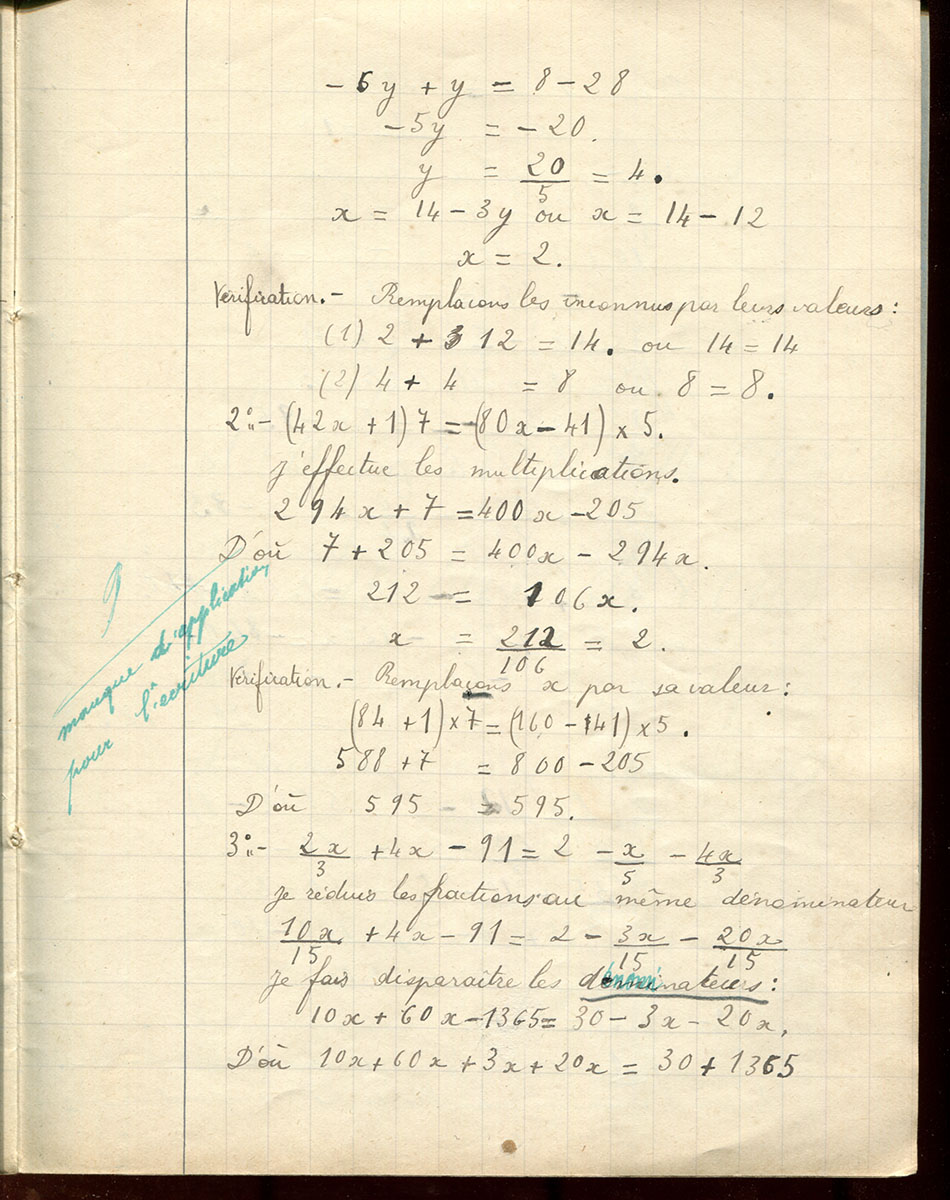 -6y + y = 8 - 28
-5y = -20.
y = 20/5 = 4.
x = 14 - 3y ou x = 14 - 12
x = 2.
Vérification.- Remplaçons les inconnus par leurs valeurs :
(1) 2 + 12 = 14. ou 14 = 14
(2) 4 + 4 = 8 ou 8 = 8.
2°:- (42x + 1) 7 = (80x - 41) × 5.
j'effectue les multiplications.
294x + 7 = 400x - 205
D'où 7 + 205 = 400x - 294x.
212 = 106x.
x = 212/106 = 2.
Vérification.- Remplaçons x par sa valeur :
(84 + 1) × 7 = (160 - 41) × 5.
588 + 7 = 800 - 205
D'où 595 = 595.
3°:- 2x/3 + 4x - 91 = 2 - x/5 - 4x/3
Je réduis les fractions au même dénominateur
10x/15 + 4x - 91 = 2 - 3x/15 - 20x/15
Je fais disparaître les dénominateurs :
10x + 60x - 1365 = 30 - 3x - 20x.
D'où 10x + 60x + 3x + 20x = 30 + 1365
manque d'application
pour l'écriture